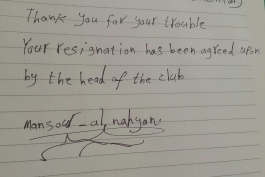 Thank you for your trouble
Your resignation has been agreed upon
by the head of the club
Mansour_al nahyan